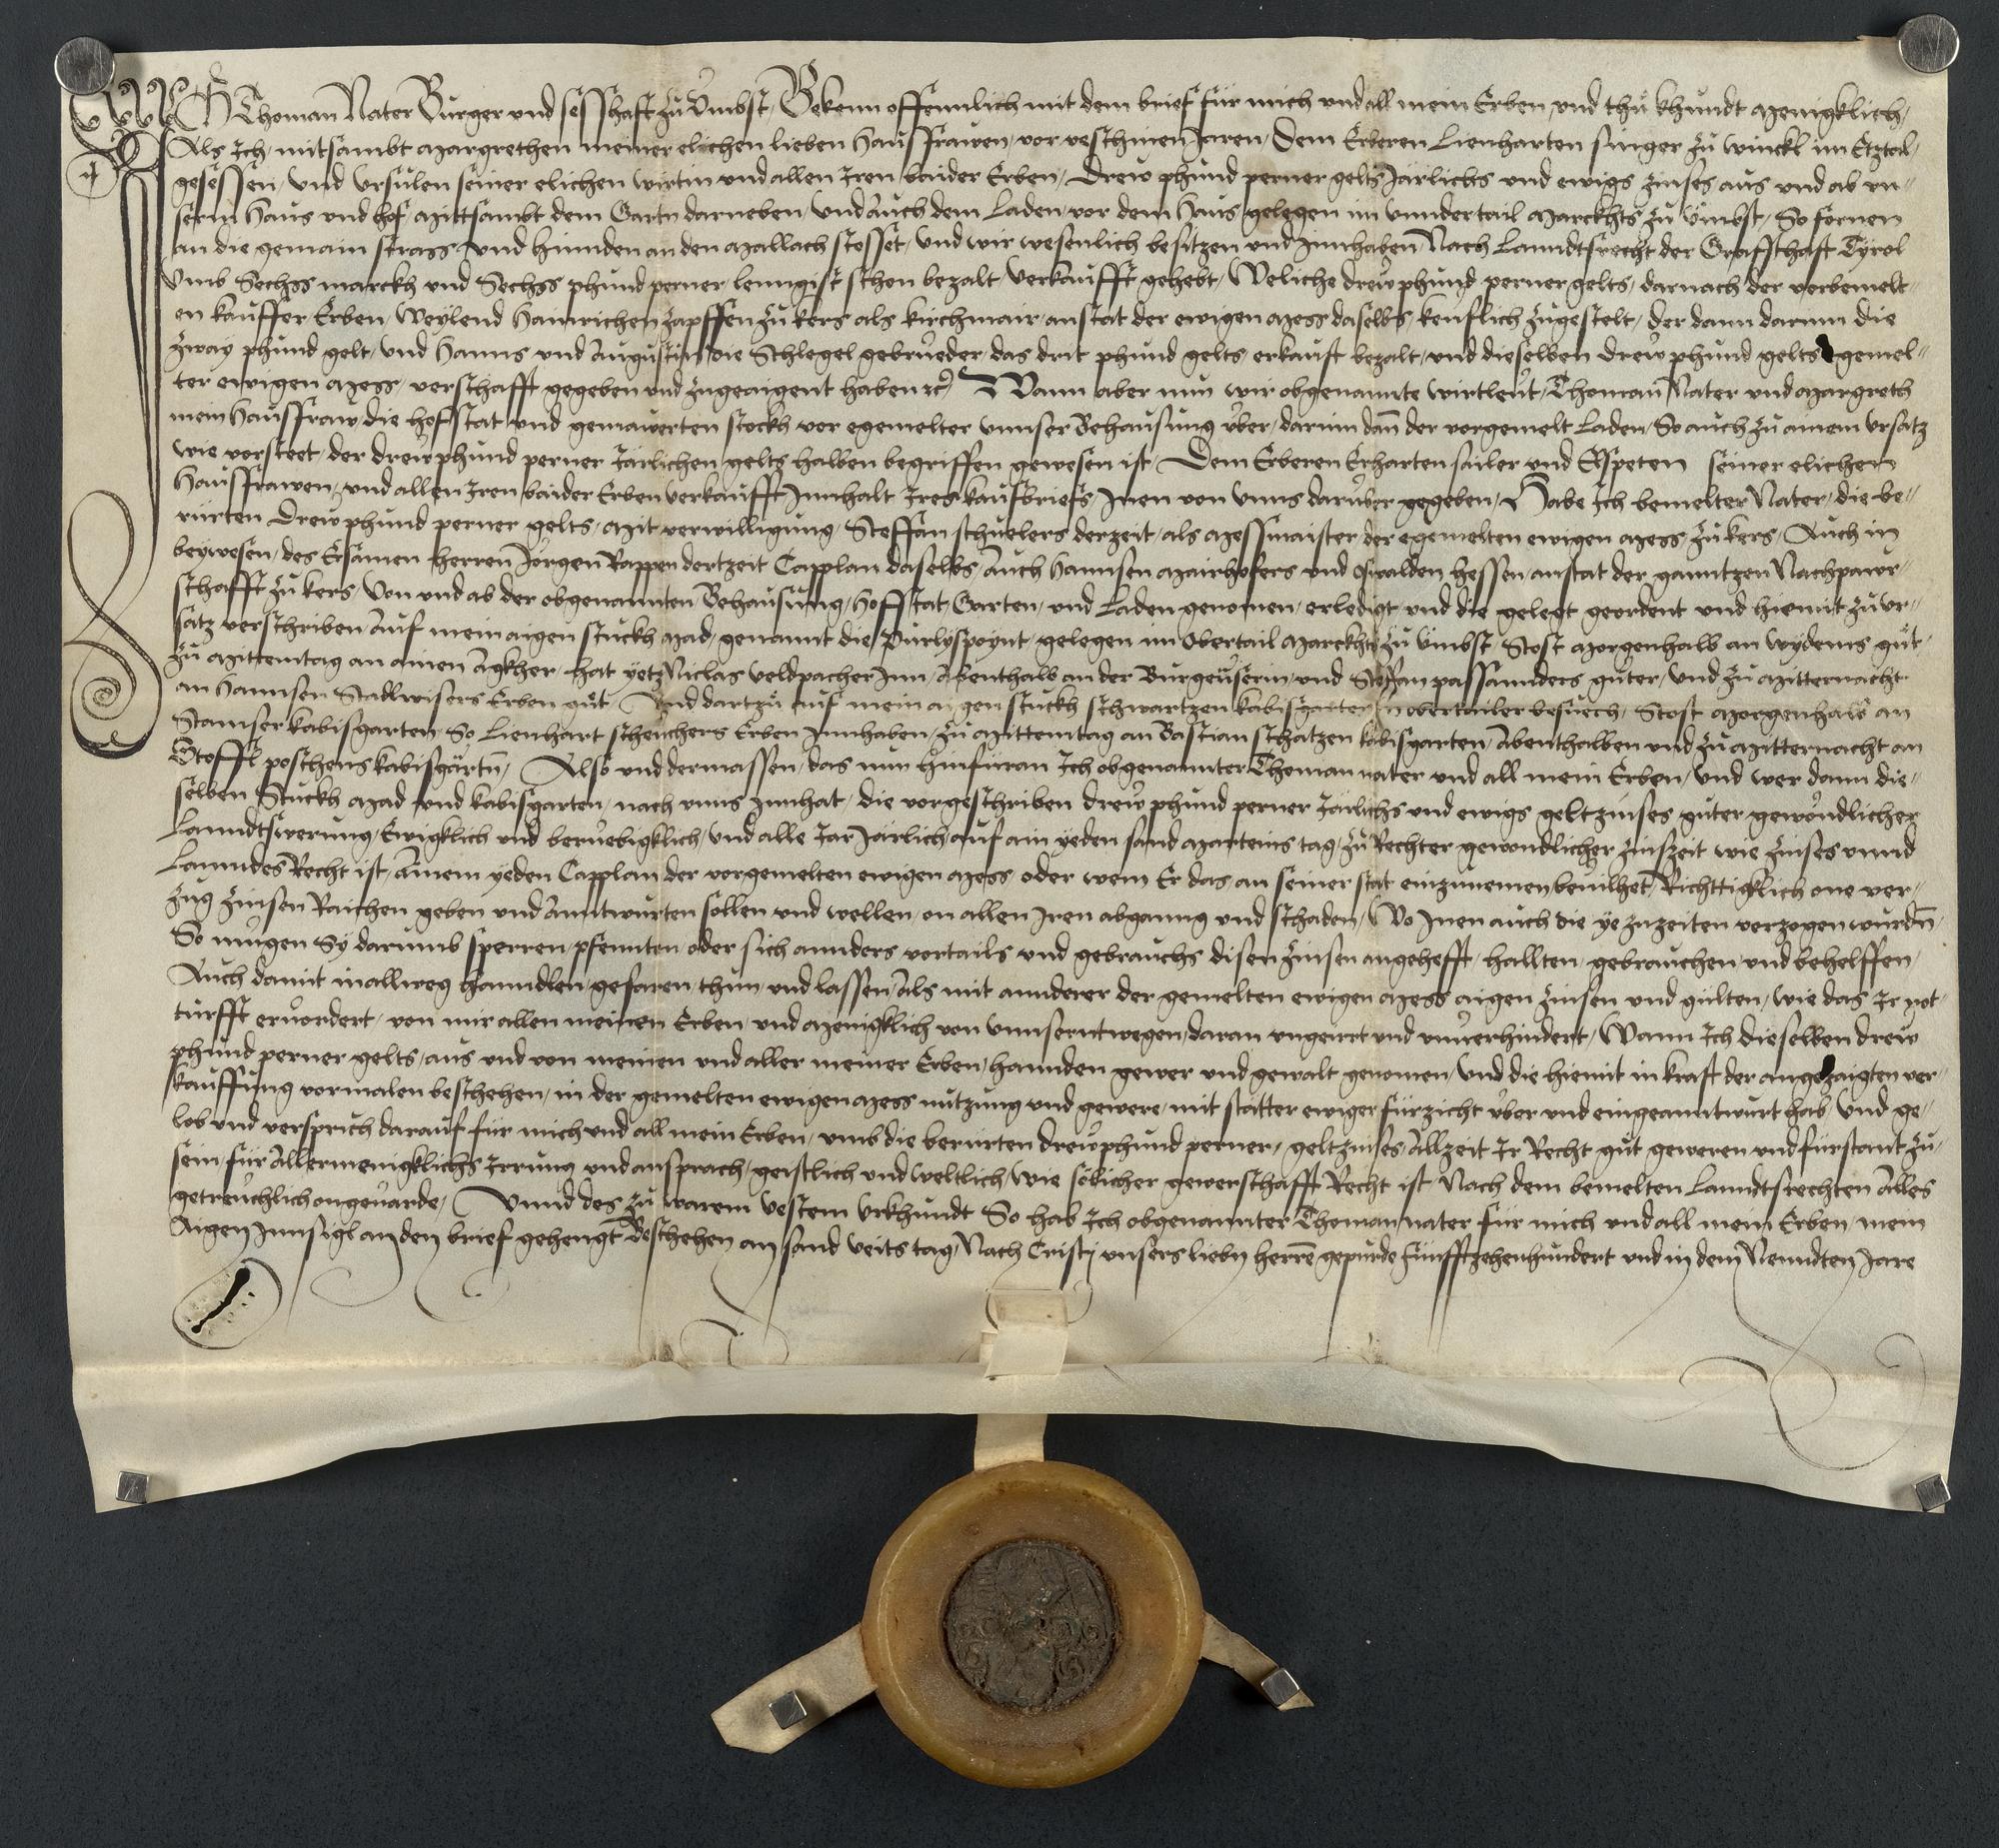 Ich Thoman Nater Burger und sesshaft zu Ŭmbst, Bekenn offennlich mit dem brief für mich und all mein Erben, und thŭ khundt menigklich,
Als Ich, mitsambt Margrethen meiner elichen lieben Hausfrawen, vor verschinen Jaren, Dem Erberen Lienharten singer zŭ winckl im Etztal,
gesessen, und Ursulen seiner elichen wirtin und allen Iren baider Erben, Drew phund perner gelts Järlichs und ewigs zinses, aus und ab un„
serm Haus und Hof, Mittsambt dem Gartn darneben, und auch dem Laden, vor dem Haus gelegen im unndertail Marckhts zŭ Ŭmbst, So fornen
an die gemain strass, und hinnden an den Mallach stosset, und wir wesenlich besitzen und Innhaben, Nach Lanndtsrecht der Grafschaft Tyrol
Umb Sechss marckh und Sechss phund perner, lenngist schon bezalt, verkaufft gehebt, Weliche drew phund perner gelts, darnach der vorbemelt„
en kauffer Erben, Weylend Hainrichen zapffen zu kers als kirchmair, anstat der ewigen Mess daselbs, keuflich zŭgestelt, der dann darinn die
zway phund gelt, und Hanns und Augustin die Schlegel gebrŭeder, das drit phund gelts, erkauft bezalt, und dieselben drew phund gelts gemel„
ter ewigen Mess, verschafft gegeben und zugeaigent haben rc Wann aber nun wir obgenannte wirtleŭt, Thoman Nater und Margreth
mein Hausfraw, die hofstat und gemawerten stockh vor egemelter unnser Behausung ŭber, darinn dann der vorgemelt Laden, So auch zŭ ainem Ursatz
wie vorsteet, der drew phund perner Järlichen gelts halben begriffen gewesen ist, Dem Erberen Erharten sailer und Elspeten seiner elichen
Hausfrawen, und allen Iren baider Erben verkaufft, Innhalt Ires kaufbriefs, Inen von unns darŭber gegeben, Habe Ich bemelter Nater, die be„
rŭrten Drew phund perner gelts, Mit verwilligung, Steffan schŭelers derzeit, als Messmaister, der egemelten ewigen Mess zŭ kers, Auch in
beywesen, des Ersamen herren Jörgen Rappen dertzeit Capplan daselbs, Auch Hannsen Mairhofers und Oswalden Hessen, anstat der ganntzen Nachpawr„
schafft zŭ kers, Von und ab der obgenannten Behausung, Hofstat, Garten, und Laden genomen, erledigt und die gelegt geordent und hiemit zŭ ur„
satz verschriben, Auf mein aigen stuckh Mad, genannt die Pŭrlyspoynt, gelegen im Obertail Marckhts zŭ Ŭmbst, Stost Morgenhalb an Wydems gŭt,
zŭ Mittemtag an ainen Angkher, hat yetz Niclas veldpacher Inn, Abenthalb an der Burgeŭserin, und Steffan passannders gŭter, und zŭ Mitternacht
an Hannsen Stadlwisers Erben gŭt, Und dartzŭ auf mein aigen stuckh schwartzen kabisgarter im obertailer besuech, Stost Morgenhalb an
Stamser kabisgarten, So Lienhart scheuchers Erben Innhaben, zŭ Mittemtag an Bastian schatzen kabisgarten, Abenthalben und zŭ Mitternacht an
Stoffl poschens kabisgärtn, Also und dermassen, das nun hinfŭran Ich obgenannter Thoman nater und all mein Erben, und wer dann die„
selben Stuckh Mad und kabisgarten, nach unns Innhat, die vorgeschriben drew phund perner Järlichs und ewigs geltzinses, gŭter gewöndlicher
Lanndtswerung, Ewigklich und berŭebigklich, und alle Jar Järlich auf ain yeden sand Marteins tag, zŭ Rechter gewondlicher zinszeit wie zinses unnd
Lanndes Recht ist, Ainem yeden Capplan der vorgemelten ewigen Mess, oder wem Er das an seiner stat einzunemen bevilhet, Richttigklich one ver„
zug zinsen Raichen geben und Anntwurten sollen und wellen, on allen Iren abganng und schaden, Wo Inen auch die ye zuzeiten verzogen wurdn,
So mŭgen Sy darumb sperren, pfennten oder sich annders vortails und gebrauchs, disen zinsen angehefft, hallten, gebrauchen, und behelffen,
Auch damit inallweg hanndlen, gefaren thun und lassen, Als mit annderer der gemelten ewigen Mess aigen zinsen und gŭlten, wie das Ir not„
turfft ervordert, von mir allen meinen Erben, und Menigklich von unnserntwegen, daran ungeirrt und unverhindert, Wann Ich dieselben drew
phund perner gelts, aus und von meinen und aller meiner Erben, hannden gewer und gewalt genomen, und die hiemit in kraft der angezaigten ver„
kauffung vormalen beschehen, in der gemelten ewigen Mess nutzung und gewere, mit statter ewiger fürzicht ŭber und eingeanntwurt hab, Und ge„
lob und versprich darauf für mich und all mein Erben, umb die berŭrten drew phund perner, geltzinses, Allzeit Ir Recht gŭt geweren und fürstant zŭ„
sein, für Allermenigklichs Irrung und ansprach, geistlich und weltlich, wie solicher gewerschafft Recht ist Nach dem bemelten Lanndtsrechten Alles
getreŭchlich ongevarde, Unnd des zŭ warem vestem Urkhundt So hab Ich obgenannter Thoman nater für mich und all mein Erben, mein
Aigen Innsigl an den brief gehengt Beschehen an sand Veits tag, Nach Cristj unsers liebn herrē gepurde Fŭnfftzehenhundert und in dem Neundten Jare